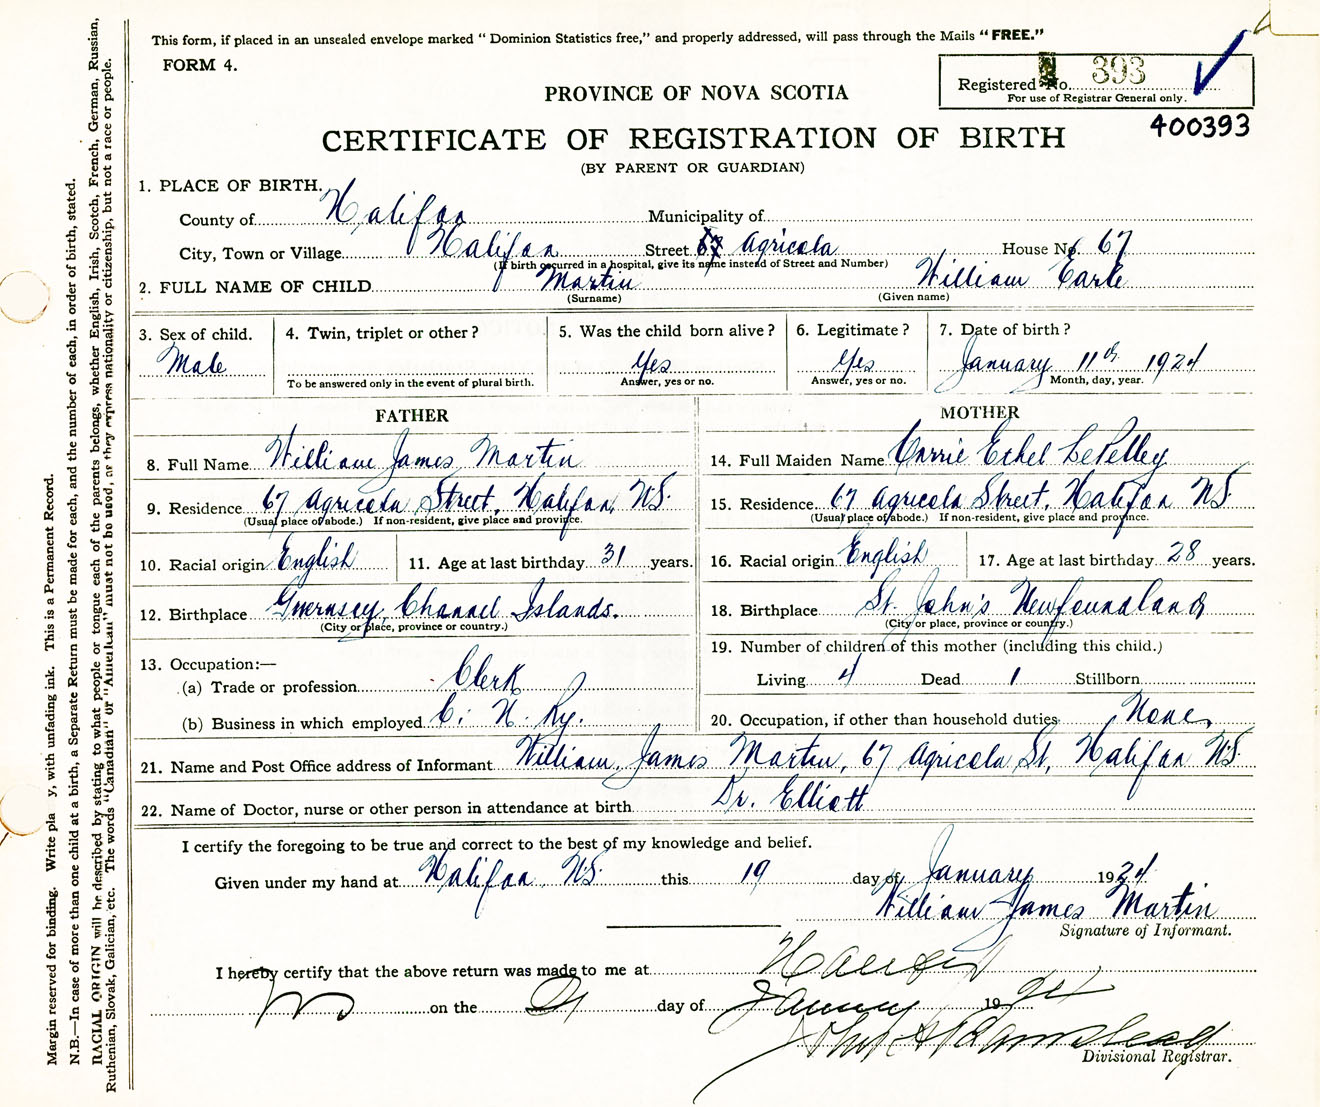 This form, if placed in an unsealed envelope marked "Dominion Statistics free," and properly addressed, will pass through the Mails "FREE."
FORM 4.
Registered No. 393
For use of Registrar General only.
400393
PROVINCE OF NOVA SCOTIA
CERTIFICATE OF REGISTRATION OF BIRTH
(BY PARENT OR GUARDIAN)
1. PLACE OF BIRTH.
County of Halifax Municipality of
City, Town or Village Halifax Street 67 Agricola House No. 67
(If birth occurred in a hospital, give its name instead of Street and Number)
2. FULL NAME OF CHILD Martin William Earle
(Surname) (Given name)
3. Sex of child. 4. Twin, triplet or other? 5. Was the child born alive? 6. Legitimate? 7. Date of birth?
Male Yes Yes January 11th 1924
To be answered only in the event of plural birth. Answer, yes or no. Answer, yes or no. Month, day, year.
FATHER MOTHER
8. Full Name William James Martin 14. Full Maiden Name Carrie Ethel LePelley
9. Residence 67 Agricola Street, Halifax, N.S. 15. Residence 67 Agricola Street, Halifax N.S.
(Usual place of abode.) If non-resident, give place and province. (Usual place of abode.) If non-resident, give place and province.
10. Racial origin English 11. Age at last birthday 31 years. 16. Racial origin English 17. Age at last birthday 28 years.
12. Birthplace Guernsey, Channel Islands. 18. Birthplace St. John's Newfoundland
(City or place, province or country.) (City or place, province or country.)
13. Occupation:— 19. Number of children of this mother (including this child.)
(a) Trade or profession Clerk Living 4 Dead 1 Stillborn
(b) Business in which employed C. N. Ry. 20. Occupation, if other than household duties None,
21. Name and Post Office address of Informant William James Martin, 67 Agricola St, Halifax N.S.
22. Name of Doctor, nurse or other person in attendance at birth Dr. Elliott
I certify the foregoing to be true and correct to the best of my knowledge and belief.
Given under my hand at Halifax N.S. this 19 day of January 1924
William James Martin
Signature of Informant.
I hereby certify that the above return was made to me at Halifax
NS on the 21 day of January 1924
Divisional Registrar.
Margin reserved for binding. Write pla y, with unfading ink. This is a Permanent Record.
N.B.—In case of more than one child at a birth, a Separate Return must be made for each, and the number of each, in order of birth, stated.
RACIAL ORIGIN will be described by stating to what people or tongue each of the parents belongs, whether English, Irish, Scotch, French, German, Russian,
Ruthenian, Slovak, Galician, etc. The words "Canadian" or "American" must not be used, as they express nationality or citizenship, but not a race or people.